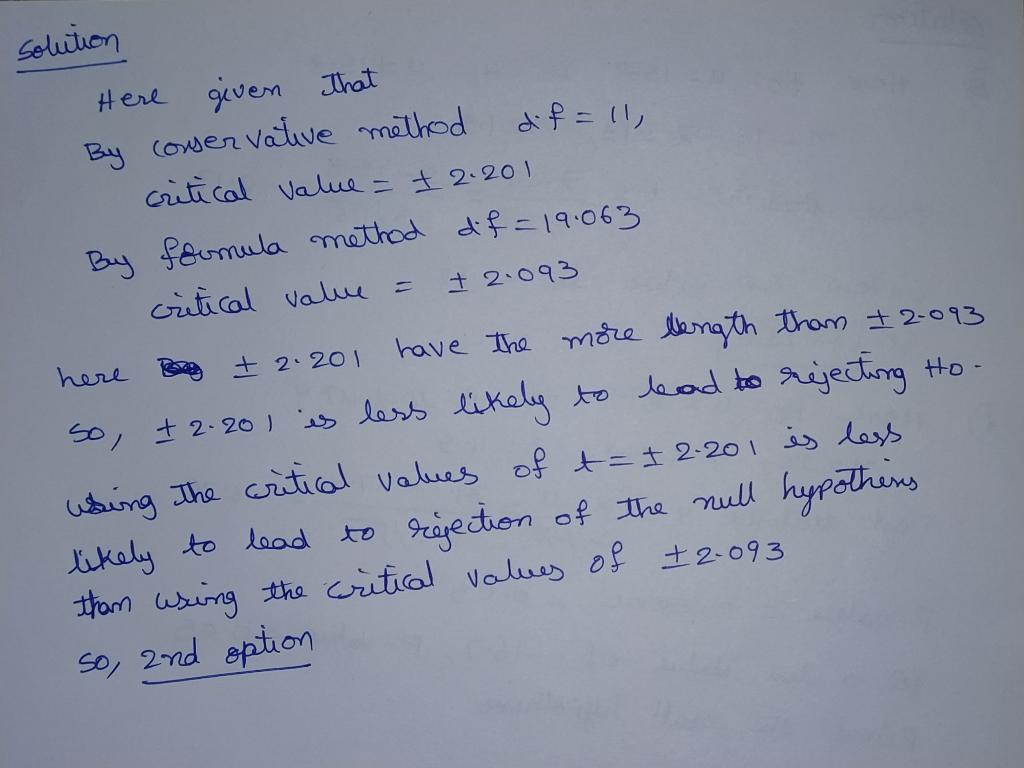 Solution
Here given that
By conservative method d.f = 11,
critical value = ± 2.201
By formula method d.f = 19.063
critical value = ± 2.093
here ± 2.201 have the more length than ± 2.093
so, ± 2.201 is less likely to lead to rejecting H0.
using the critical values of t = ± 2.201 is less
likely to lead to rejection of the null hypothesis
than using the critical values of ± 2.093
so, 2nd option